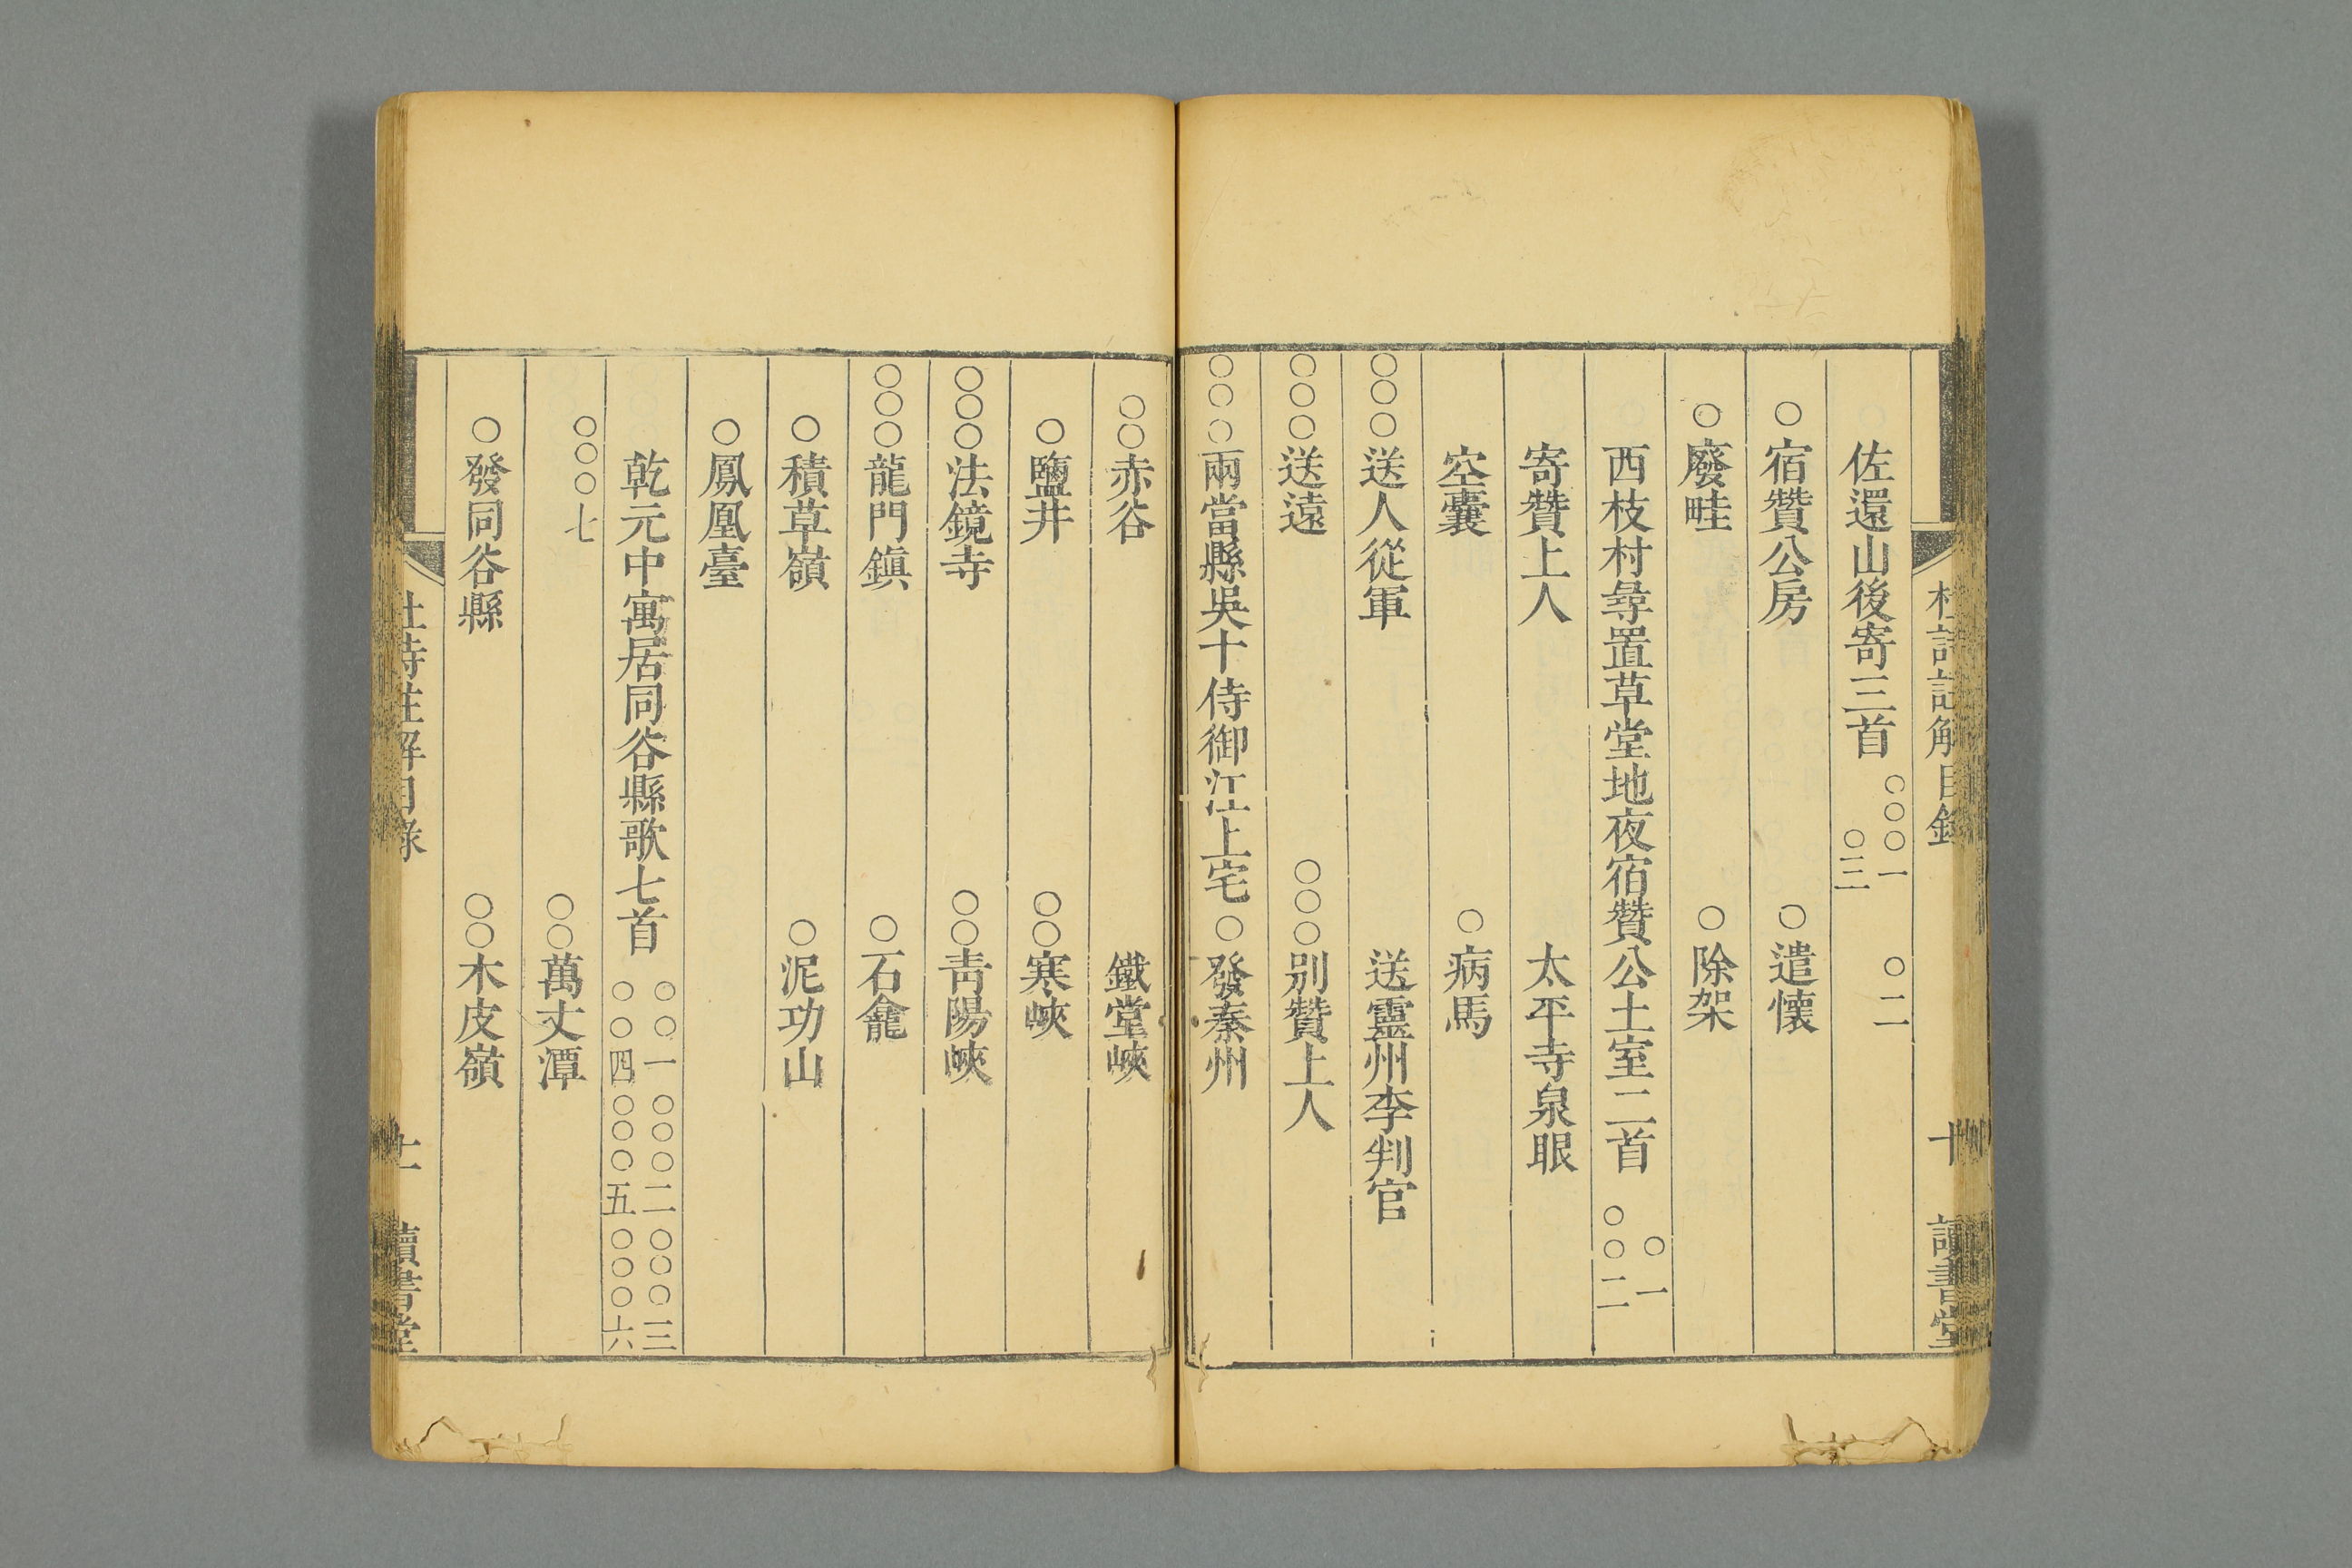 杜詩註解目錄 十 讀書堂
佐還山後寄三首 ○○○一 ○二 ○三
○宿贊公房 ○遣懷
○廢畦 ○除架
西枝村尋置草堂地夜宿贊公土室二首 ○一 ○○二
寄贊上人 太平寺泉眼
空囊 ○病馬
○○○送人從軍 送靈州李判官
○○○送遠 ○○○別贊上人
○○○兩當縣吳十侍御江上宅 ○發秦州
○○赤谷 鐵堂峽
○鹽井 ○○寒峽
○○○法鏡寺 ○○靑陽峽
○○○龍門鎮 ○石龕
○積草嶺 ○泥功山
○鳳凰臺
乾元中寓居同谷縣歌七首 ○○一 ○○○二 ○○○三 ○○四 ○○○五 ○○○六
○○○七 ○○萬丈潭
○發同谷縣 ○○木皮嶺
杜詩註解目錄 十一 讀書堂